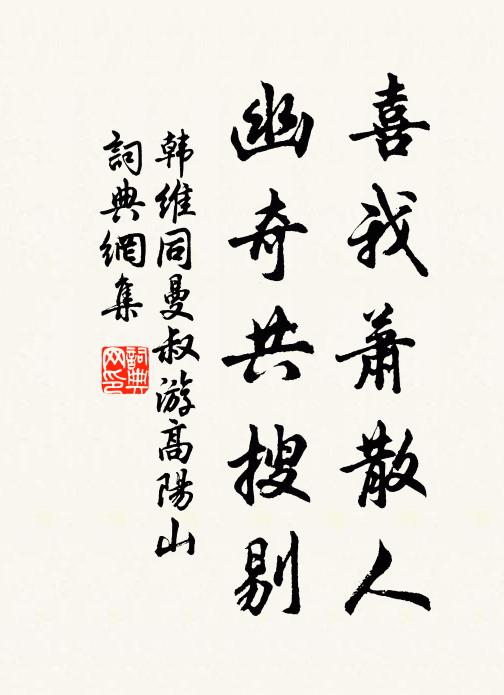 喜我萧散人
幽奇共搜剔
韩维同曼叔游高陽山
詞典網集
詞典网印